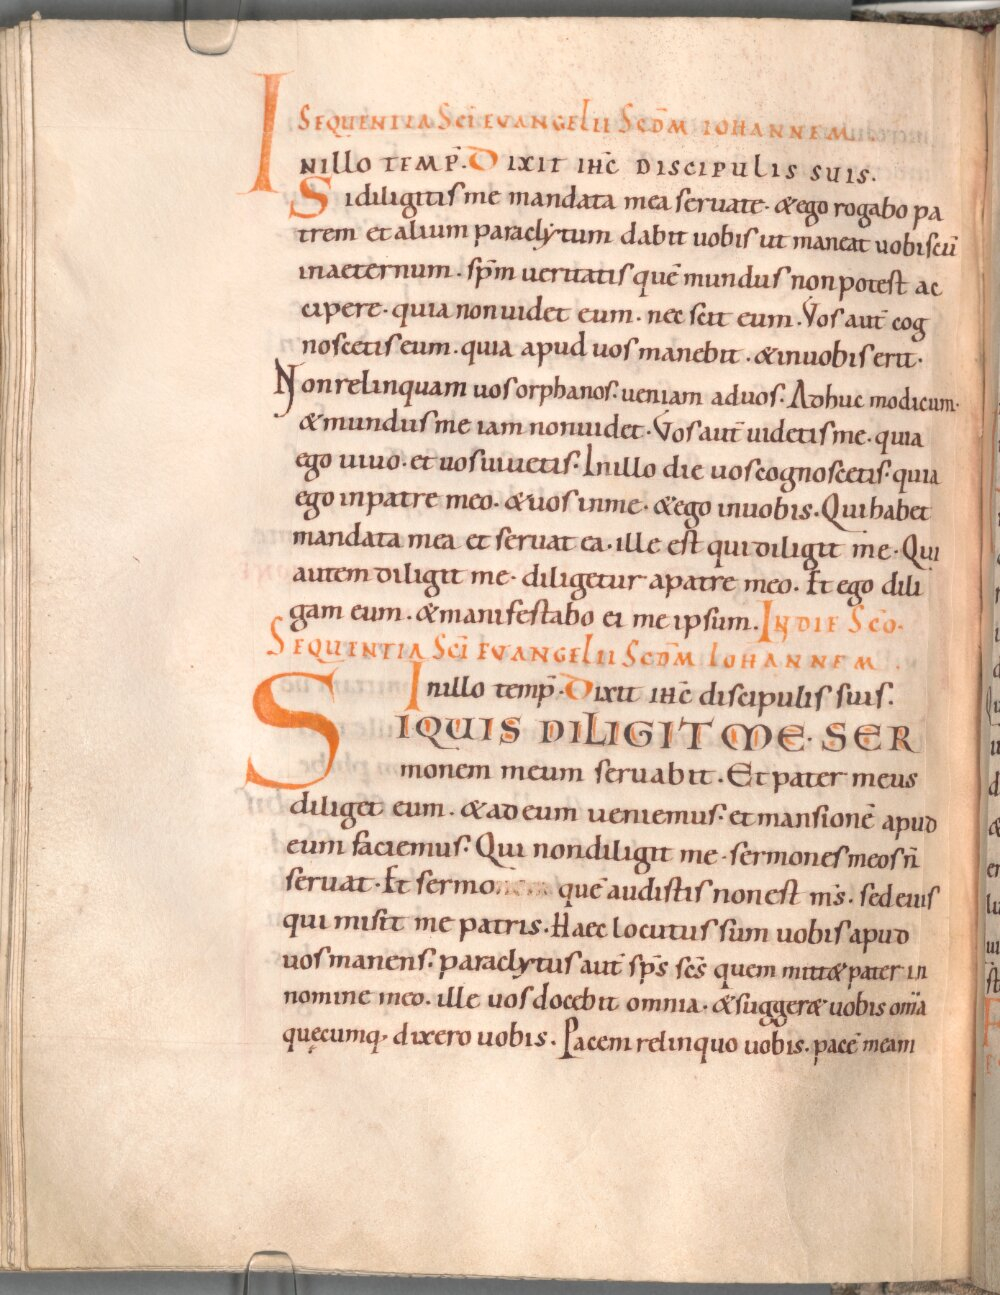 SEQUENTIA SCI EVANGELII SCDM IOHANNEM.
INILLO TEMP̄. DIXIT IHC̄ DISCIPULIS SUIS.
Sidiligitis me mandata mea seruate. &ego rogabo pa
trem et alium paraclytum dabit uobis ut maneat uobiscū
inaeternum. spm̄ ueritatis quē mundus non potest ac
cipere. quia non uidet eum. nec scit eum. Vos aut̄ cog
noscetis eum. quia apud uos manebit. &inuobis erit.
Non relinquam uos orphanos. ueniam ad uos. Adhuc modicum.
&mundus me iam non uidet. Vos aut̄ uidetis me. quia
ego uiuo. et uos uiuetis. Inillo die uos cognoscetis. quia
ego inpatre meo. &uos inme. &ego inuobis. Qui habet
mandata mea et seruat ea. ille est qui diligit me. Qui
autem diligit me. diligetur apatre meo. Et ego dili
gam eum. &manifestabo ei me ipsum. IN DIE SCO.
SEQUENTIA SCI EVANGELII SCDM IOHANNEM.
Inillo temp̄. Dixit ihc̄ discipulis suis.
SIQUIS DILIGIT ME. SER
monem meum seruabit. Et pater meus
diliget eum. &ad eum ueniemus. et mansionē apud
eum faciemus. Qui non diligit me. sermones meos n̄
seruat. Et sermo quē audistis non est ms̄. sed eius
qui misit me patris. Haec locutus sum uobis apud
uos manens. paraclytus aut̄ sps̄ scs̄ quem mitt& pater in
nomine meo. ille uos docebit omnia. &sugger& uobis omīa
quęcumq. dixero uobis. Pacem relinquo uobis. pacē meam